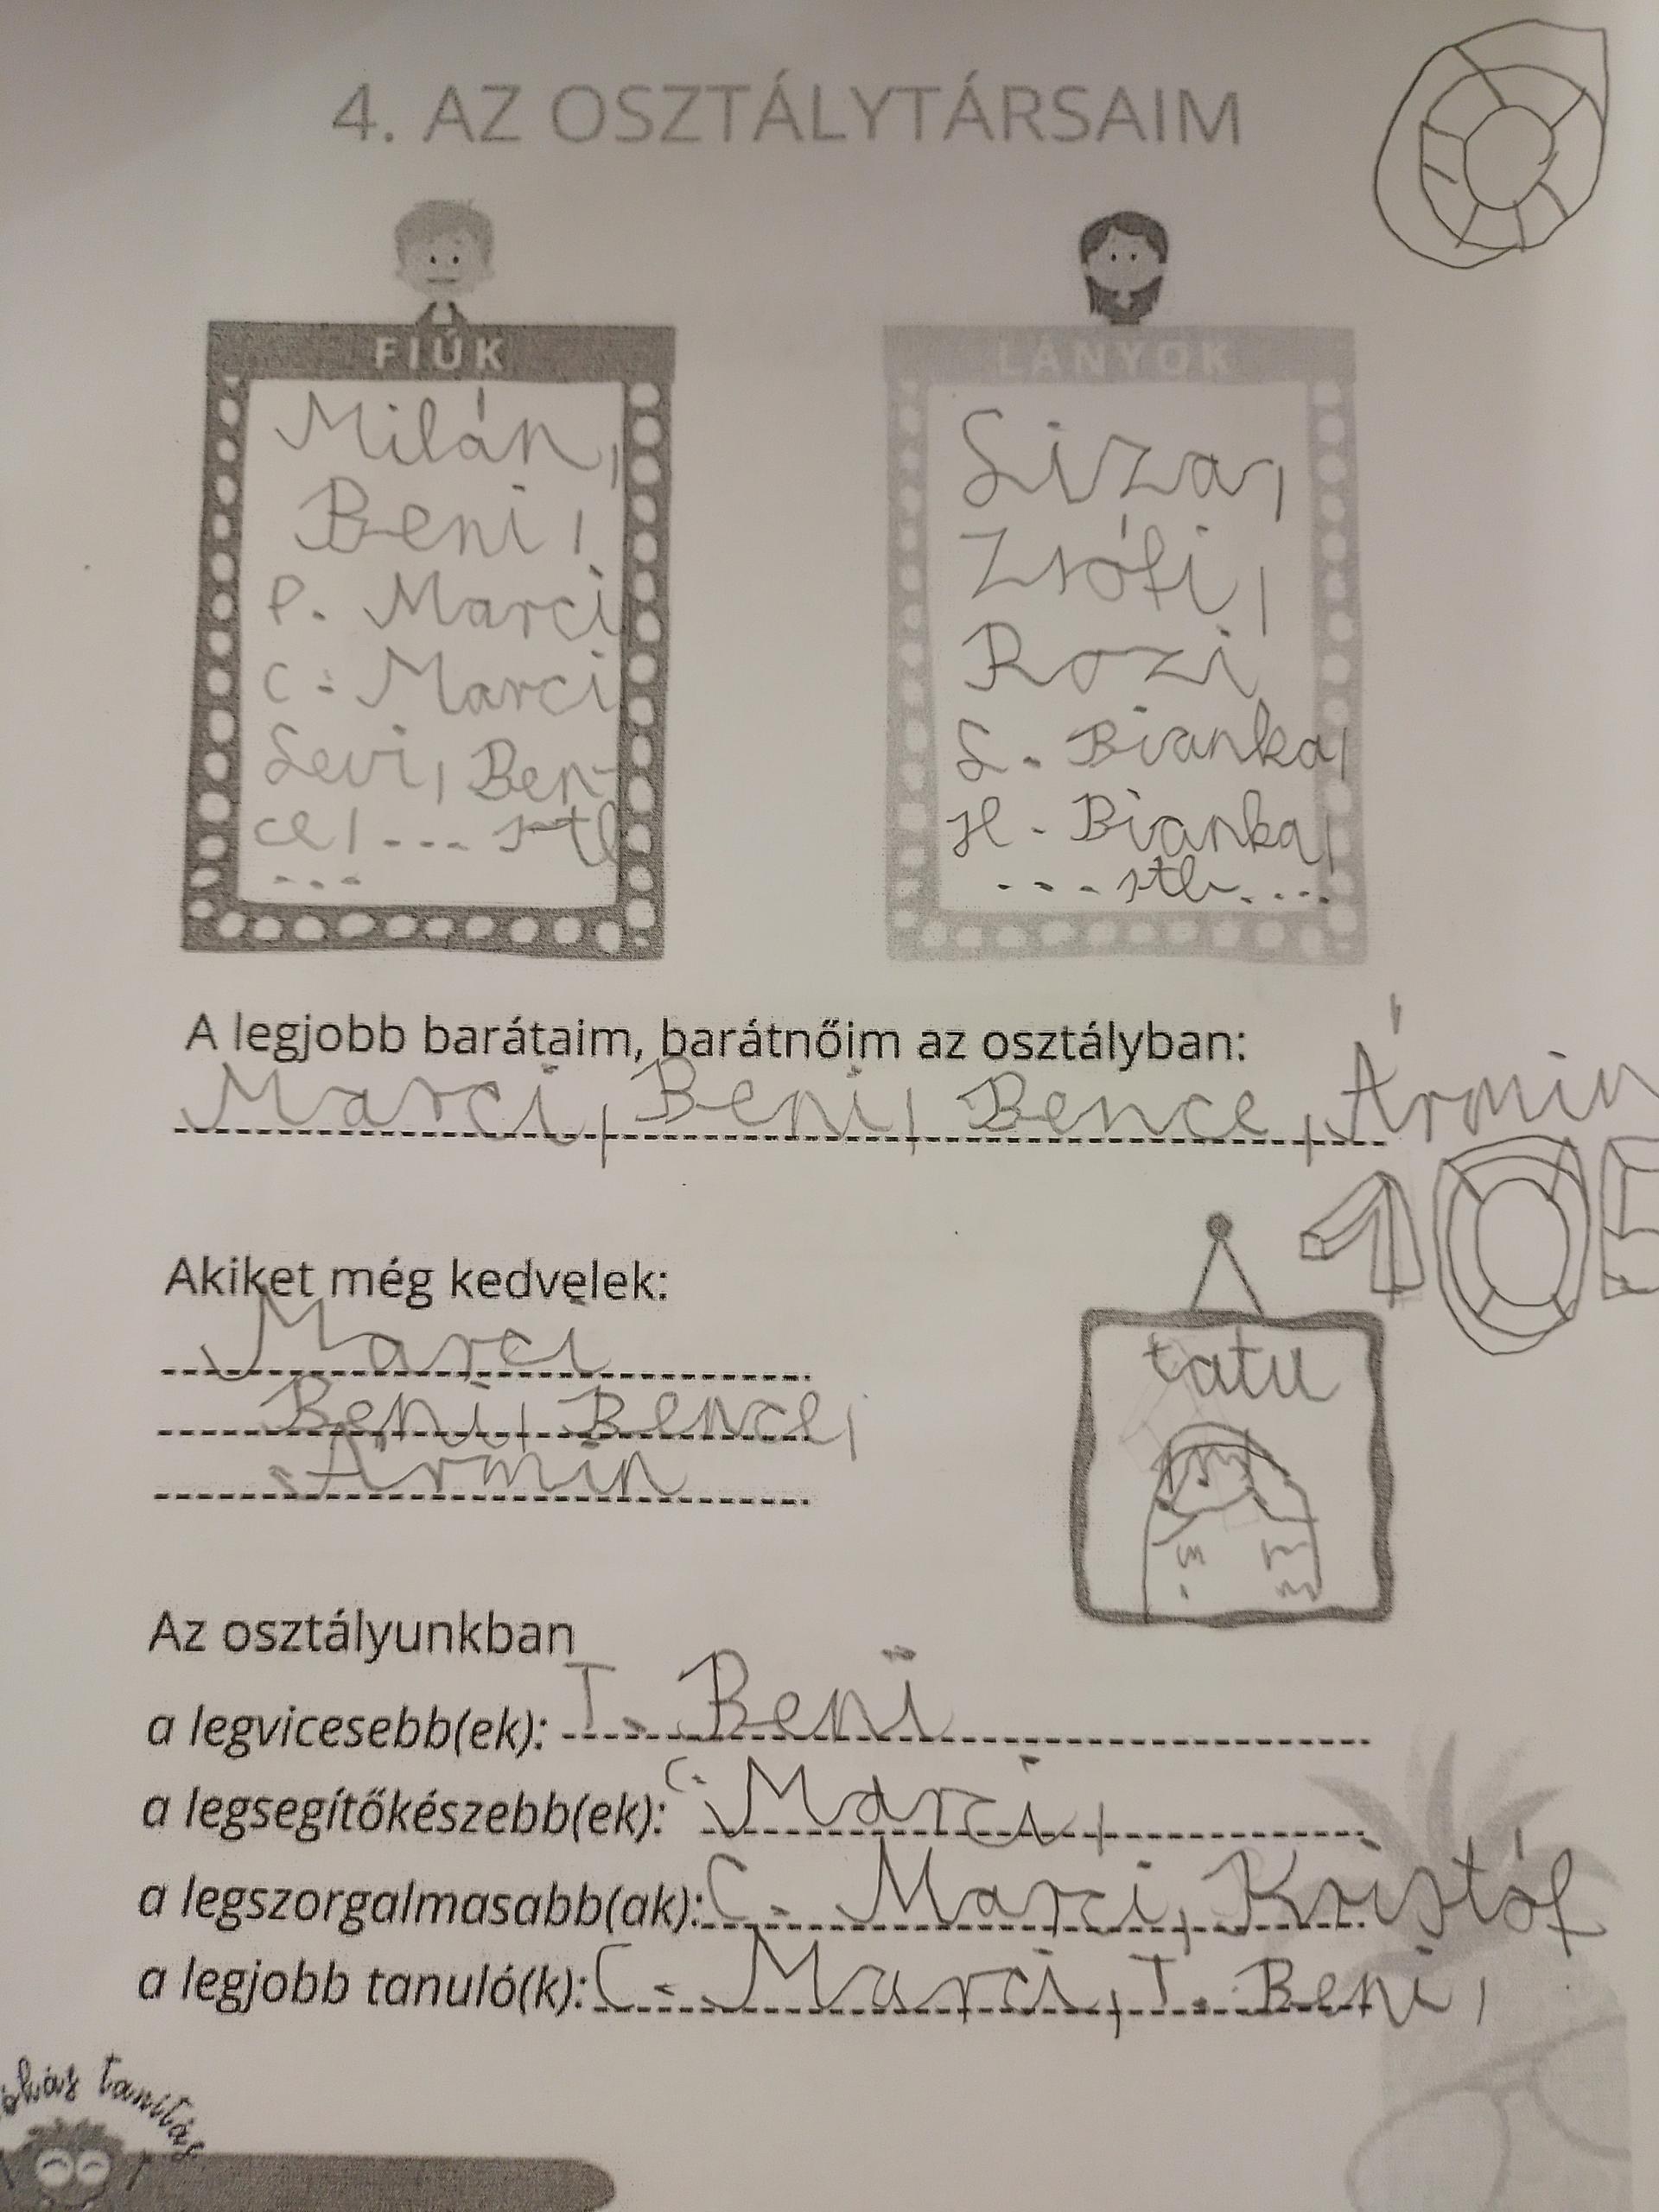 4. AZ OSZTÁLYTÁRSAIM
FIÚK
Milán,
Beni,
P. Marci
C. Marci
Levi, Ben-
ce, ... stb
...
LÁNYOK
Liza,
Zsófi,
Rozi
L. Bianka,
H. Bianka,
... stb. ...
A legjobb barátaim, barátnőim az osztályban:
Marci, Beni, Bence, Ármin
105
Akiket még kedvelek:
Marci
Beni, Bence,
Ármin
tatu
Az osztályunkban
a legvicesebb(ek): T. Beni
a legsegítőkészebb(ek): C. Marci,
a legszorgalmasabb(ak): C. Marci, Kristóf
a legjobb tanuló(k): C. Marci, T. Beni,
tanítás